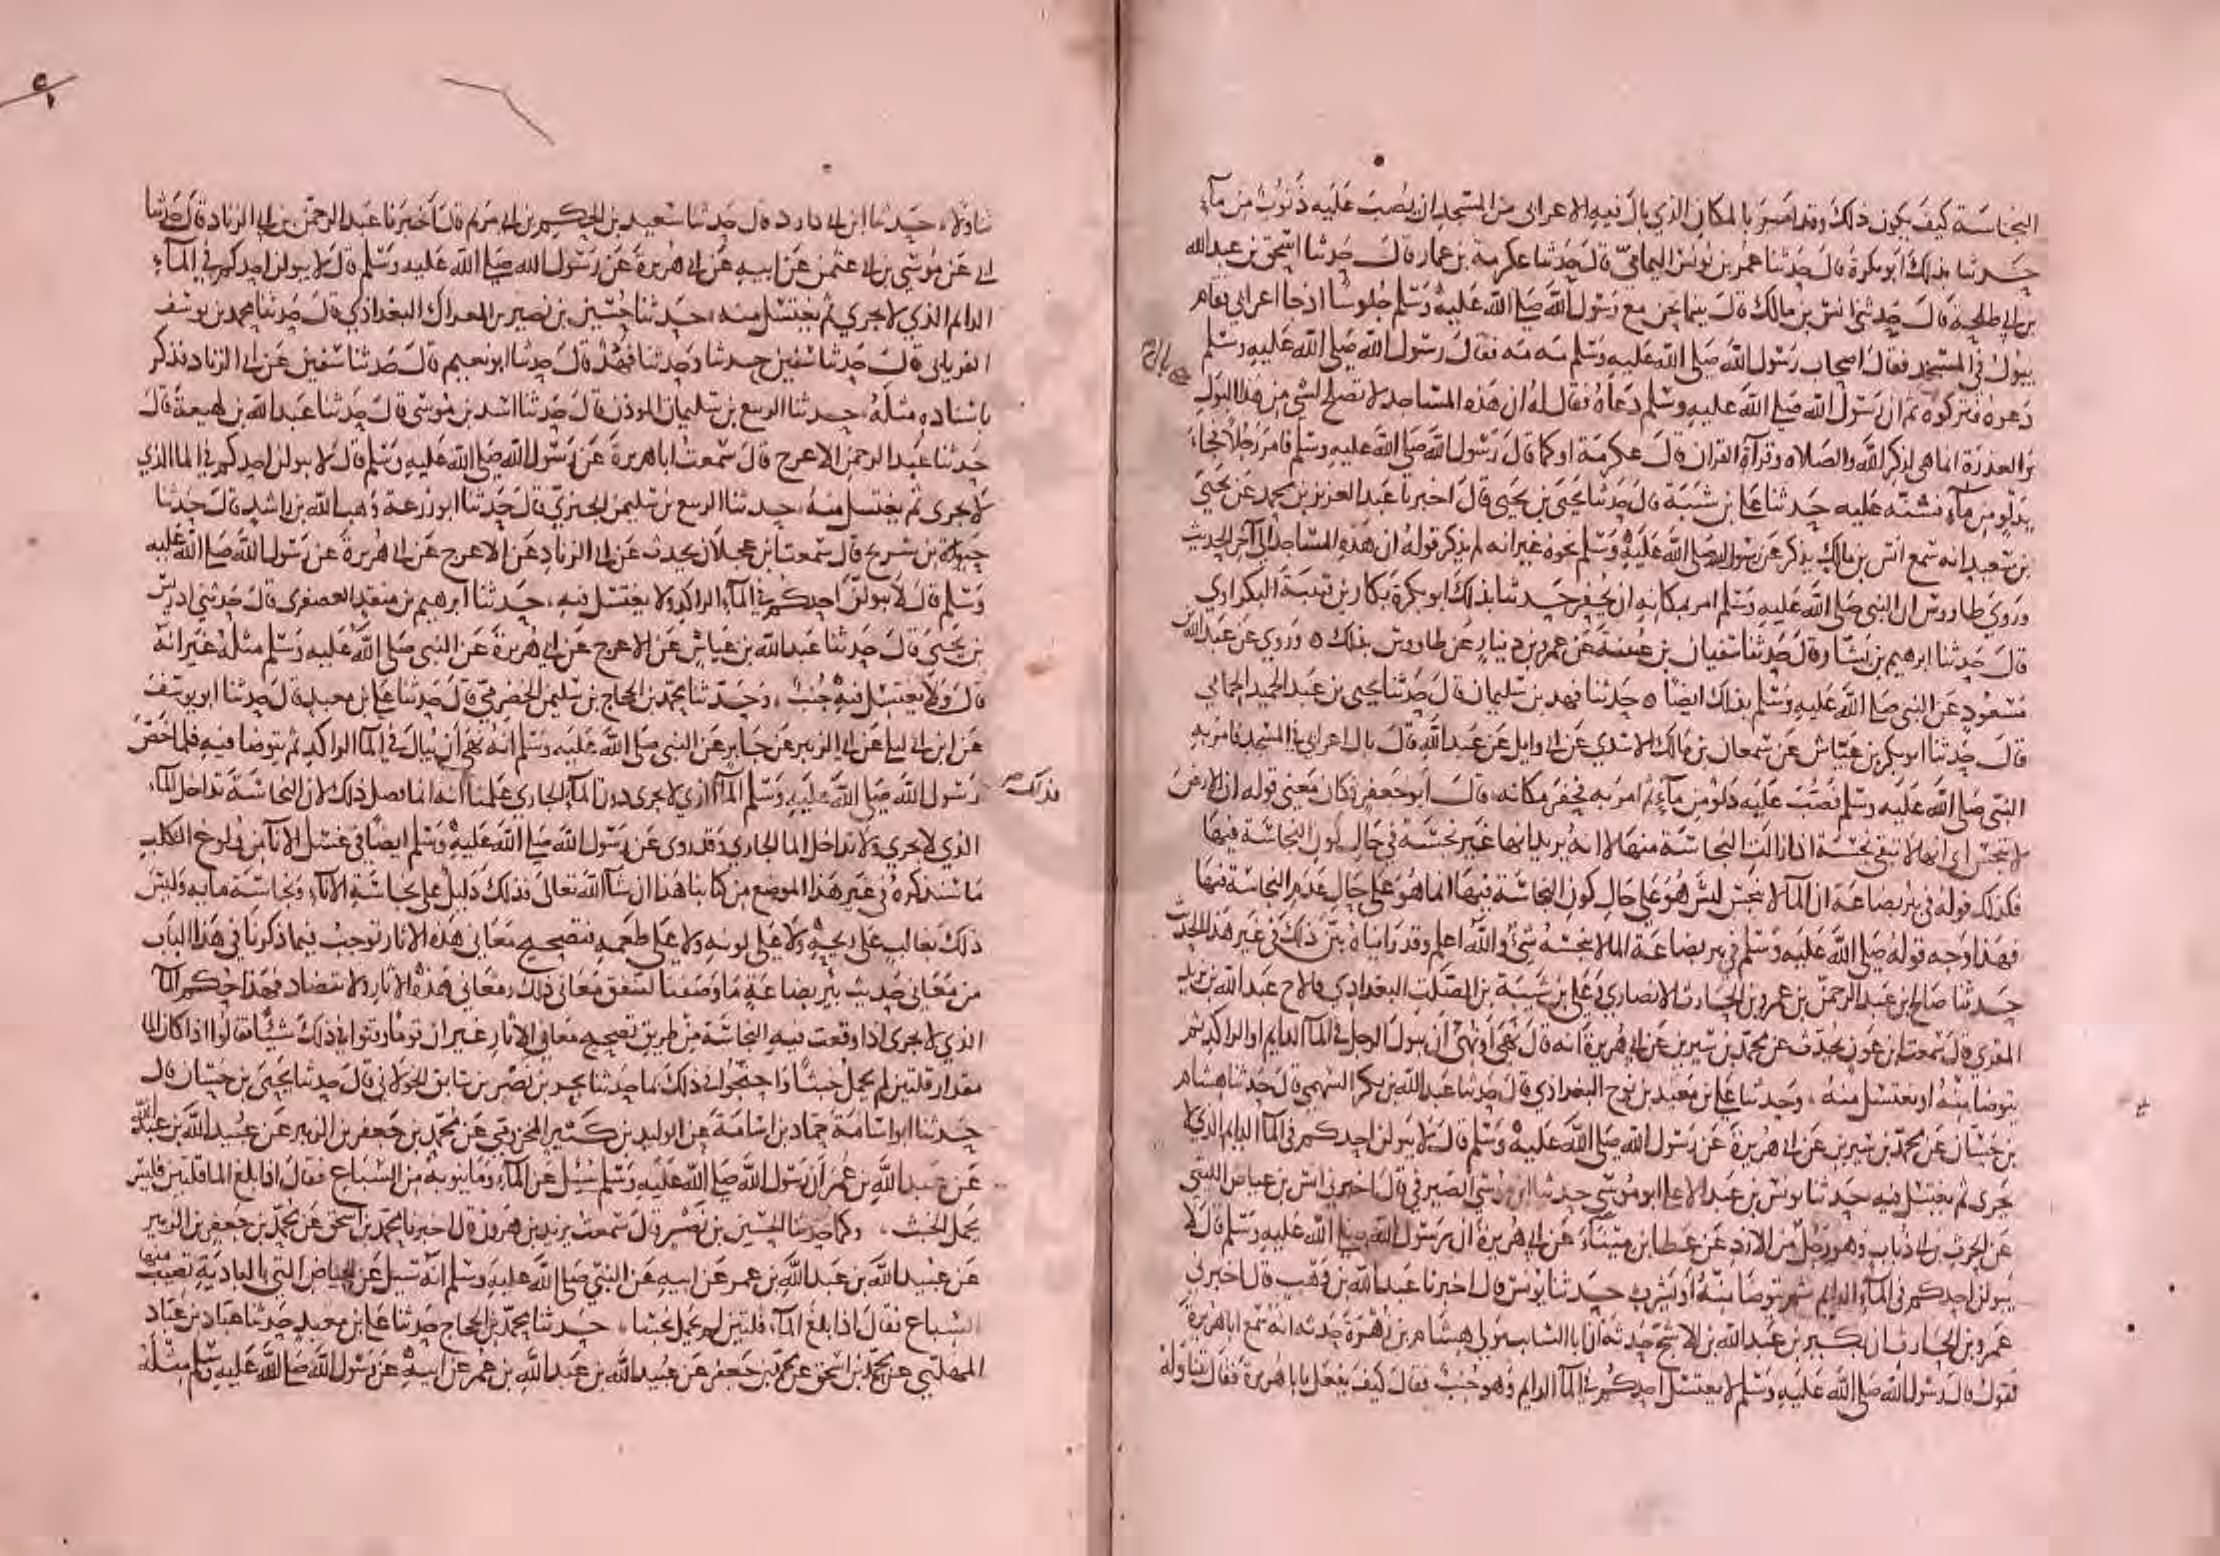 النجاسة كيف يكون ذلك وقد امر بالمكان الذي بال فيه الاعرابي من المسجد ان يصب عليه ذنوب من مآء
حدثنا بذلك ابو بكرة قال حدثنا عمر بن يونس اليمامي قال حدثنا عكرمة بن عمار قال حدثنا اسحق بن عبد الله
بن ابي طلحة قال حدثني انس بن مالك قال بينما نحن مع رسول الله صلى الله عليه وسلم جلوسا اذ جا اعرابي فقام
يبول في المسجد فقال اصحاب رسول الله صلى الله عليه وسلم مه مه فقال رسول الله صلى الله عليه وسلم
دعوه فتركوه ثم ان رسول الله صلى الله عليه وسلم دعاه فقال له ان هذه المساجد لا تصلح لشي من هذا البول
والعذرة انما هي لذكر الله والصلاه وقرآة القران قال عكرمة او كما قال رسول الله صلى الله عليه وسلم فامر رجلا فجاء
بدلو من مآء فشنه عليه حدثنا علي بن شيبة قال حدثنا يحيى بن يحيى قال اخبرنا عبد العزيز بن محمد عن يحيى
بن سعيد انه سمع انس بن مالك يذكر عن رسول الله صلى الله عليه وسلم نحوه غير انه لم يذكر قوله ان هذه المساجد الى آخر الحديث
وروى طاووس ان النبي صلى الله عليه وسلم امر بمكانه ان يحفر حدثنا بذلك ابو بكرة بكار بن قتيبة البكراوي
قال حدثنا ابرهيم بن بشار قال حدثنا سفيان بن عيينة عن عمرو بن دينار عن طاووس بذلك ه وروي عن عبد الله بن
مسعود عن النبي صلى الله عليه وسلم بذلك ايضا ه حدثنا فهد بن سليمان قال حدثنا يحيى بن عبد الحميد الحماني
قال حدثنا ابو بكر بن عياش عن سمعان بن مالك الاسدي عن ابي وايل عن عبد الله قال بال اعرابي في المسجد فامر به
النبي صلى الله عليه وسلم فصب عليه دلو من مآء ثم امر به فحفر مكانه قال ابو جعفر فكان معنى قوله ان الارض
لا تنجس اي انها لا تبقى نجسة اذا زالت النجاسة منها لا انه يريد انها غير نجسة في حال كون النجاسة فيها
فكذلك قوله في بئر بضاعة ان المآ لا ينجس ليس هو على حال كون النجاسة فيها انما هو على حال عدم النجاسة فيها
فهذا وجه قوله صلى الله عليه وسلم في بئر بضاعة الما لا ينجسه شئ والله اعلم وقد رايناه بين ذلك في غير هذا الحديث
حدثنا صالح بن عبد الرحمن بن عمرو بن الحارث الانصاري وعلي بن شيبة بن الصلت البغدادي قالا ح عبد الله بن يزيد
المقري قال سمعت ابن عون يحدث عن محمد بن سيرين عن ابي هريرة انه قال نهى او نهي ان يبول الرجل في المآ الدايم او الراكد ثم
يتوضا منه او يغتسل منه ، وحدثنا علي بن معبد بن نوح البغدادي قال حدثنا عبد الله بن بكر السهمي قال حدثنا هشام
بن حسان عن محمد بن سيرين عن ابي هريرة عن رسول الله صلى الله عليه وسلم قال لا يبولن احدكم في المآ الدايم الذي لا
يجرى ثم يغتسل فيه حدثنا يونس بن عبد الاعلى ابو موسى الصدفي قال اخبرني انس بن عياض الليثي
عن الحرث بن ابي ذباب وهو رجل من الازد عن عطا بن ميناء عن ابي هريرة ان رسول الله صلى الله عليه وسلم قال لا
يبولن احدكم في المآء الدايم ثم يتوضا منه او يشرب حدثنا يونس قال اخبرنا عبد الله بن وهب قال اخبرني
عمرو بن الحارث ان بكير بن عبد الله بن الاشج حدثه ان ابا السايب مولى هشام بن زهرة حدثه انه سمع ابا هريرة
يقول قال رسول الله صلى الله عليه وسلم لا يغتسل احدكم في المآ الدايم وهو جنب فقال كيف يفعل يابا هريرة فقال يتناوله
تناولا ، حدثنا ابن ابي داود قال حدثنا سعيد بن الحكم بن ابي مريم قال اخبرنا عبد الرحمن بن ابي الزناد قال حدثنا
ابي عن موسى بن ابي عثمن عن ابيه عن ابي هريرة عن رسول الله صلى الله عليه وسلم قال لا يبولن احدكم في المآء
الدايم الذي لا يجري ثم يغتسل منه ، حدثنا حسين بن نصير بن المعارك البغدادي قال حدثنا محمد بن يوسف
الفريابي قال حدثنا سفين ح حدثنا وحدثنا فهد قال حدثنا ابو نعيم قال حدثنا سفين عن ابي الزناد فذكر
باسناده مثله ، حدثنا الربيع بن سليمان المؤذن قال حدثنا اسد بن موسى قال حدثنا عبد الله بن لهيعة قال
حدثنا عبد الرحمن الاعرج قال سمعت ابا هريرة عن رسول الله صلى الله عليه وسلم قال لا يبولن احدكم في الما الذي
لا يجرى ثم يغتسل منه ، حدثنا الربيع بن سليمن الجيزي قال حدثنا ابو زرعة وهب الله بن راشد قال حدثنا
حيوة بن شريح قال سمعت ابن عجلان يحدث عن ابي الزناد عن الاعرج عن ابي هريرة عن رسول الله صلى الله عليه
وسلم قال لا يبولن احدكم في المآء الراكد ولا يغتسل فيه ، حدثنا ابرهيم بن منقذ العصفري قال حدثني ادريس
بن يحيى قال حدثنا عبد الله بن عياش عن الاعرج عن ابي هريرة عن النبي صلى الله عليه وسلم مثله غير انه
قال ولا يغتسل فيه جنب ، وحدثنا محمد بن الحجاج بن سليمن الحضرمي قال حدثنا علي بن معبد قال حدثنا ابو يوسف
عن ابن ابي ليلى عن ابي الزبير عن جابر عن النبي صلى الله عليه وسلم انه نهى ان يبال في المآ الراكد ثم يتوضا فيه فلما خص
رسول الله صلى الله عليه وسلم المآ الذي لا يجرى دون المآ الجاري علمنا انه انما فصل ذلك لان النجاسة تداخل المآء
الذي لا يجري ولا تداخل الما الجاري وقد روى عن رسول الله صلى الله عليه وسلم ايضا في غسل الانآ من ولوغ الكلب
ما سنذكره في غير هذا الموضع من كتابنا هذا ان شآ الله تعالى فذلك دليل على نجاسة الانآء ونجاسة مايه وليس
ذلك بغالب على ريحه ولا على لونه ولا على طعمه فتصحيح معاني هذه الاثار توجب فيما ذكرنا في هذا الباب
من معاني حديث بئر بضاعة ما وصفنا لتتفق معاني ذلك ومعاني هذه الاثار ولا تتضاد فهذا حكم المآ
الذي لا يجرى اذا وقعت فيه النجاسة من طريق تصحيح معاني الاثار غير ان قوما وقتوا في ذلك شيئا فقالوا اذا كان الما
مقدار قلتين لم يحمل خبثا واحتجوا في ذلك بما حدثنا بحر بن نصر بن سابق الخولاني قال حدثنا يحيى بن حسان قال
حدثنا ابو اسامة حماد بن اسامة عن الوليد بن كثير المخزومي عن محمد بن جعفر بن الزبير عن عبيد الله بن عبد الله
عن عبد الله بن عمر ان رسول الله صلى الله عليه وسلم سئل عن المآء وما ينوبه من السباع فقال اذا بلغ الما قلتين فليس
يحمل الخبث ، وكما حدثنا الحسين بن نصر قال سمعت يزيد بن هرون قال اخبرنا محمد بن اسحق عن محمد بن جعفر بن الزبير
عن عبيد الله بن عبد الله بن عمر عن ابيه عن النبي صلى الله عليه وسلم انه سيل عن الحياض التي بالبادية تصيب منها
السباع فقال اذا بلغ المآء قلتين لم يحمل خبثا ، حدثنا محمد بن الحجاج حدثنا علي بن معبد حدثنا عباد بن عباد
المهلبي عن محمد بن اسحق عن محمد بن جعفر عن عبيد الله بن عبد الله بن عمر عن ابيه عن رسول الله صلى الله عليه وسلم مثله